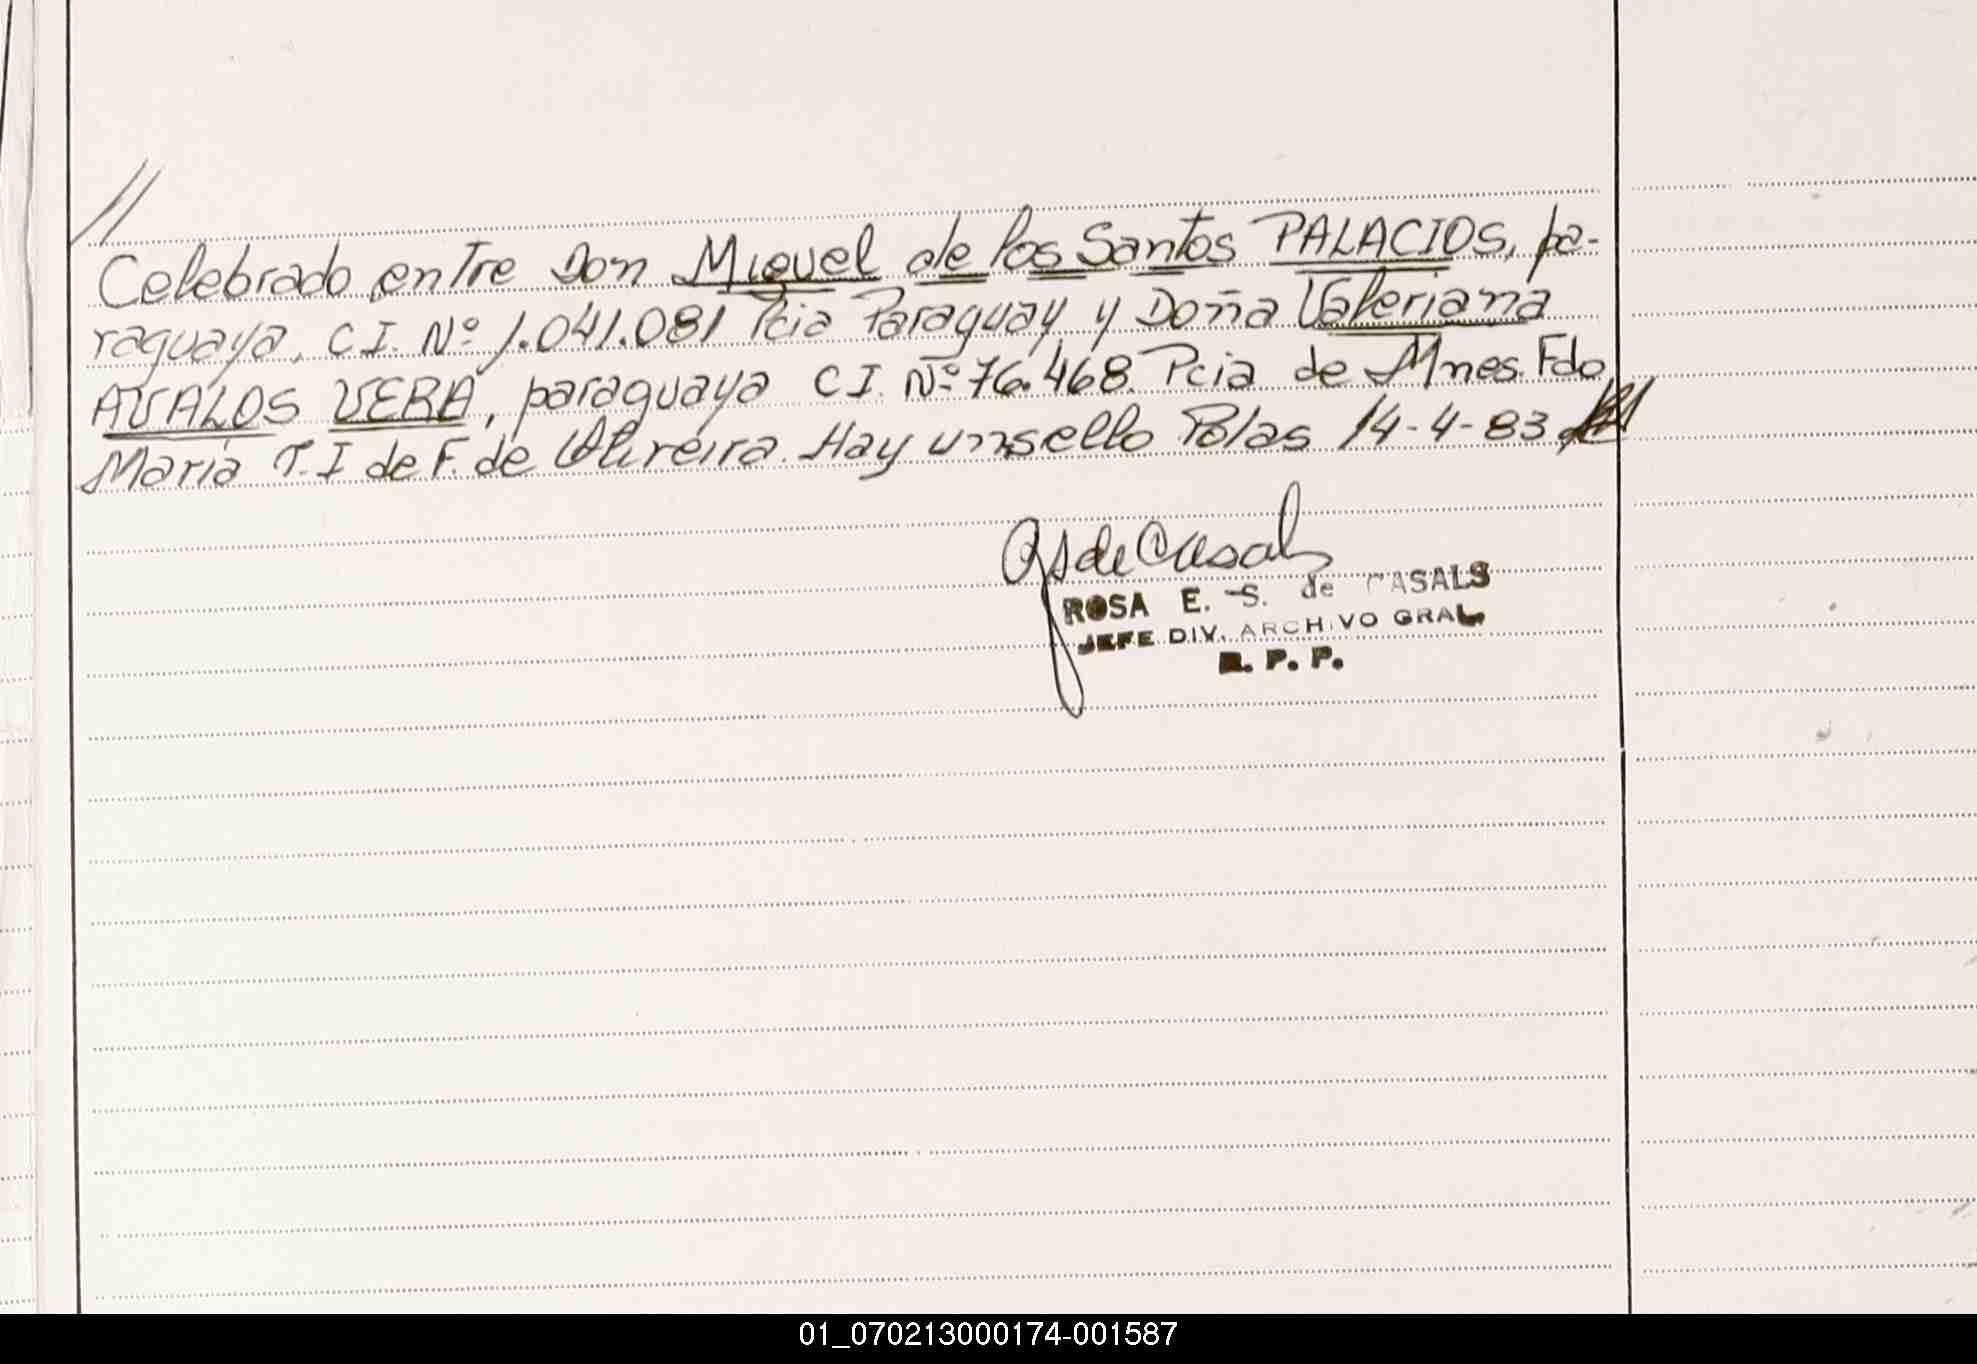 //
Celebrado entre Don Miguel de los Santos PALACIOS, pa-
raguaya, C I. Nº 1.041.081 Pcia Paraguay y Doña Valeriana
AVALOS VERA, paraguaya C I. Nº 76.468. Pcia de Mnes. Fdo
Maria T. I de F. de Olireira. Hay un sello Polas 14-4-83
RS de Casals
ROSA E. S. de CASALS
JEFE DIV. ARCHIVO GRAL
R. P. P.
01_070213000174-001587